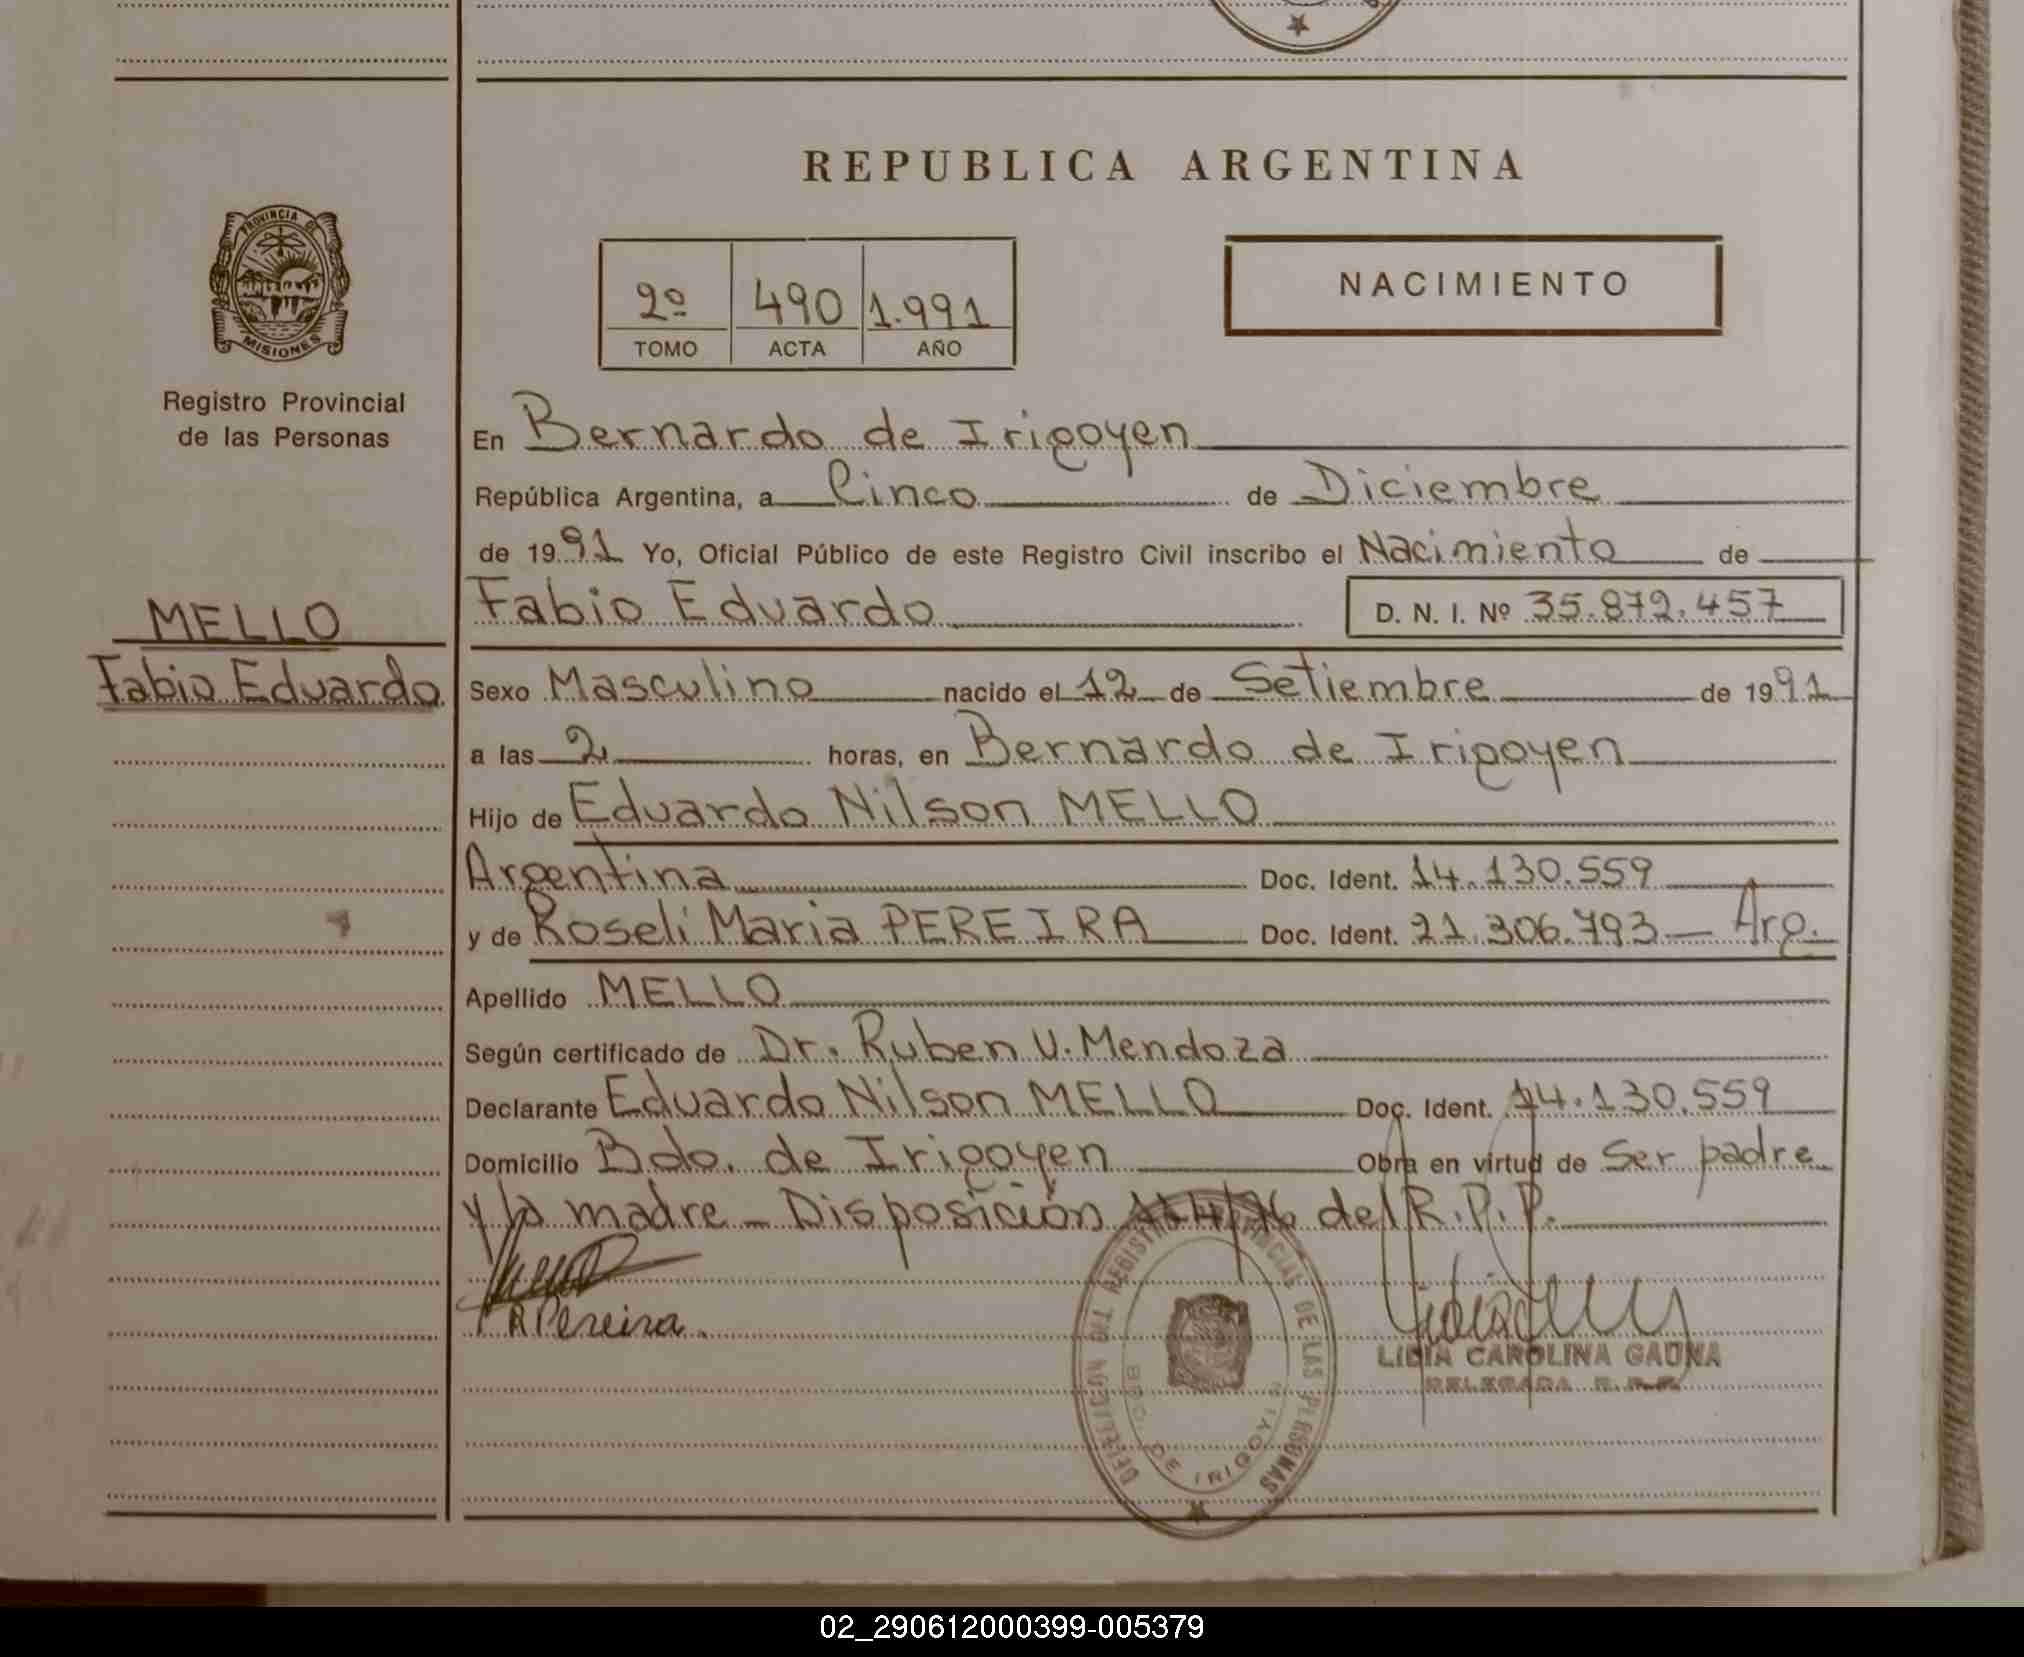 REPUBLICA ARGENTINA
PROVINCIA DE
MISIONES
Registro Provincial
de las Personas
2º 490 1.991
TOMO ACTA AÑO
NACIMIENTO
En Bernardo de Irigoyen
República Argentina, a Cinco de Diciembre
de 1991 Yo, Oficial Público de este Registro Civil inscribo el Nacimiento de
MELLO
Fabio Eduardo
Fabio Eduardo D. N. I. Nº 35.872.457
Sexo Masculino nacido el 12 de Setiembre de 1991
a las 2 horas, en Bernardo de Irigoyen
Hijo de Eduardo Nilson MELLO
Argentina Doc. Ident. 14.130.559
y de Roseli Maria PEREIRA Doc. Ident. 21.306.793 - Arg.
Apellido MELLO
Según certificado de Dr. Ruben V. Mendoza
Declarante Eduardo Nilson MELLO Doc. Ident. 14.130.559
Domicilio Bdo. de Irigoyen Obra en virtud de Ser padre
y la madre - Disposición del R.P.P.
R Pereira.
DE LAS PERSONAS
BDO. DE IRIGOYEN
LIDIA CAROLINA GAUNA
DELEGADA R.P.P.
02_290612000399-005379